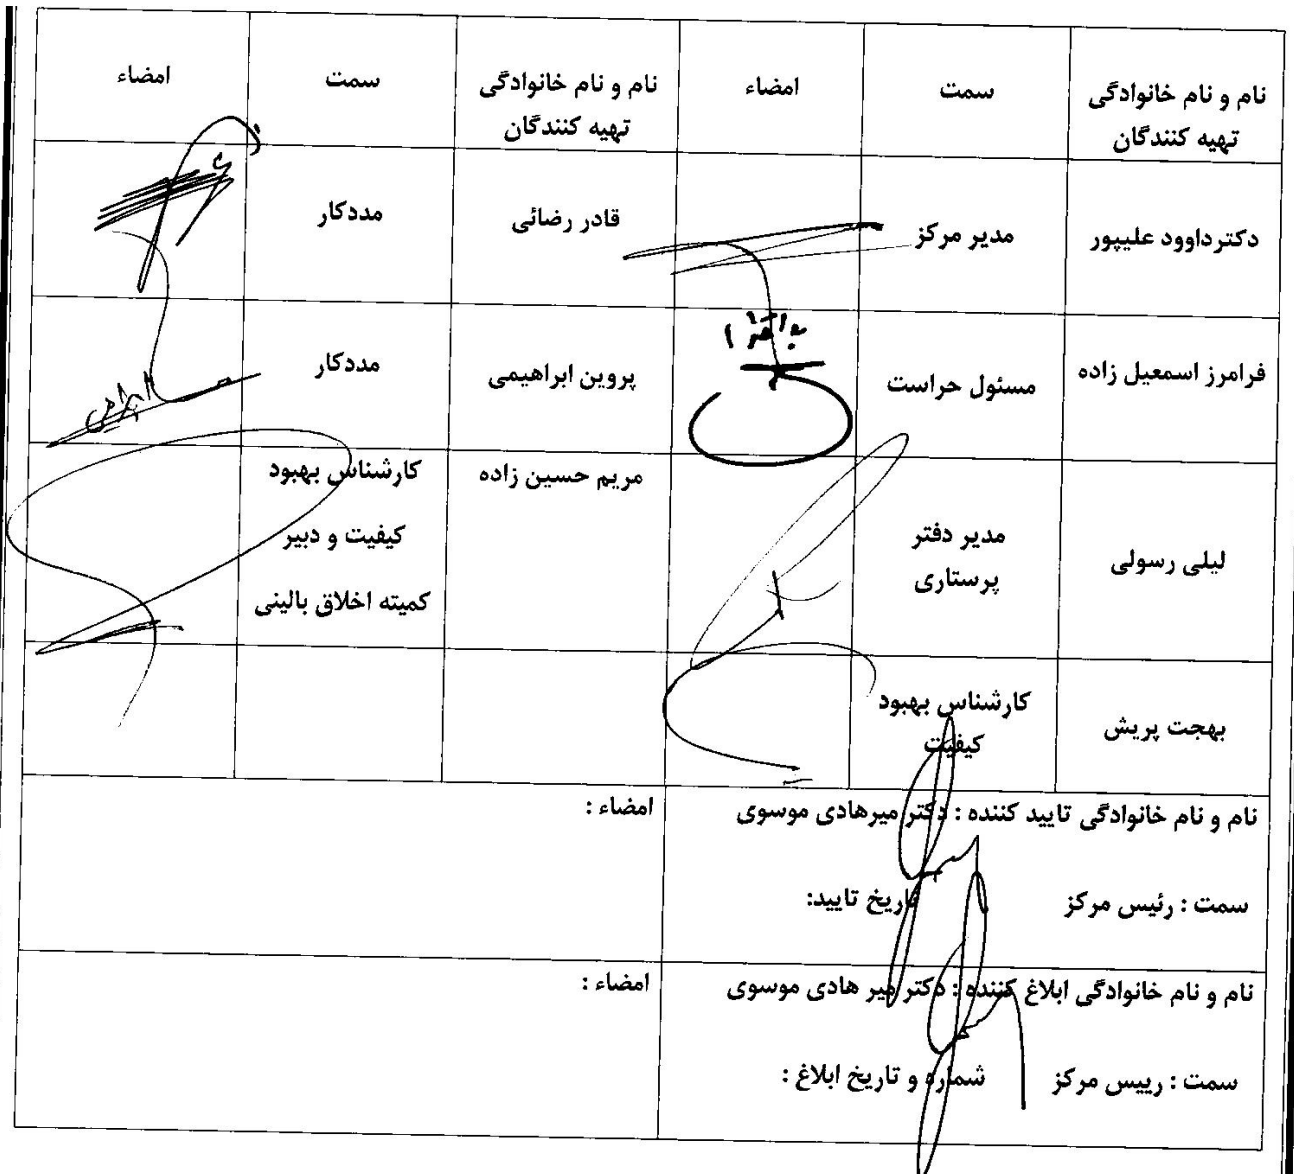 نام و نام خانوادگی تهیه کنندگان	سمت	امضاء	نام و نام خانوادگی تهیه کنندگان	سمت	امضاء
دکترداوود علیپور	مدیر مرکز		قادر رضائی	مددکار
فرامرز اسمعیل زاده	مسئول حراست		پروین ابراهیمی	مددکار
لیلی رسولی	مدیر دفتر پرستاری		مریم حسین زاده	کارشناس بهبود کیفیت و دبیر کمیته اخلاق بالینی
بهجت پریش	کارشناس بهبود کیفیت
نام و نام خانوادگی تایید کننده : دکتر میرهادی موسوی	امضاء :
سمت : رئیس مرکز	تاریخ تایید:
نام و نام خانوادگی ابلاغ کننده : دکتر میر هادی موسوی	امضاء :
سمت : رییس مرکز	شماره و تاریخ ابلاغ :